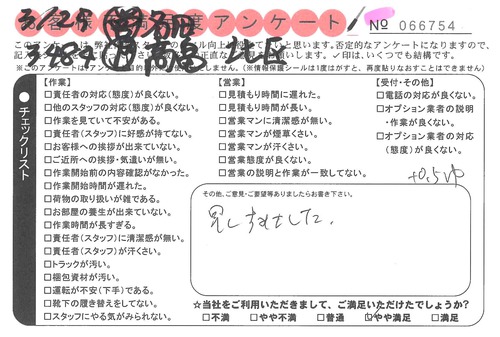 お客様満足度アンケート
No 066754
このアンケートは、弊社
否定的なアンケートになりますので、
✓印は、いくつでも結構です。
(※情報保護シールは1度がすと、再度貼りなおすことはできません)
チェックリスト
【作業】
□責任者の対応(態度)が良くない。
□他のスタッフの対応(態度)が良くない。
□作業を見ていて不安がある。
□責任者(スタッフ)に好感が持てない。
□お客様への挨拶が出来ていない。
□ご近所への挨拶・気遣いが無い。
□作業開始前の内容確認がなかった。
□作業開始時間が遅れた。
□荷物の取り扱いが雑である。
□お部屋の養生が出来ていない。
□作業時間が長すぎる。
□責任者(スタッフ)に清潔感が無い。
□責任者(スタッフ)が汗くさい。
□トラックが汚い。
□梱包資材が汚い。
□運転が不安(下手)である。
□靴下の履き替えをしてない。
□スタッフにやる気がみられない。
【営業】
□見積もり時間に遅れた。
□見積もり時間が長い。
□営業マンに清潔感が無い。
□営業マンが煙草くさい。
□営業マンが汗くさい。
□営業態度が良くない。
□営業の説明と作業が一致してない。
【受付・その他】
□電話の対応が良くない。
□オプション業者の説明
・作業が良くない。
□オプション業者の対応
(態度)が良くない。
+0.5ゆ
その他、ご意見・ご要望等ありましたらお書き下さい。
☆当社をご利用いただきまして、ご満足いただけたでしょうか?
□不満 □やや不満 □普通 ☑やや満足 □満足